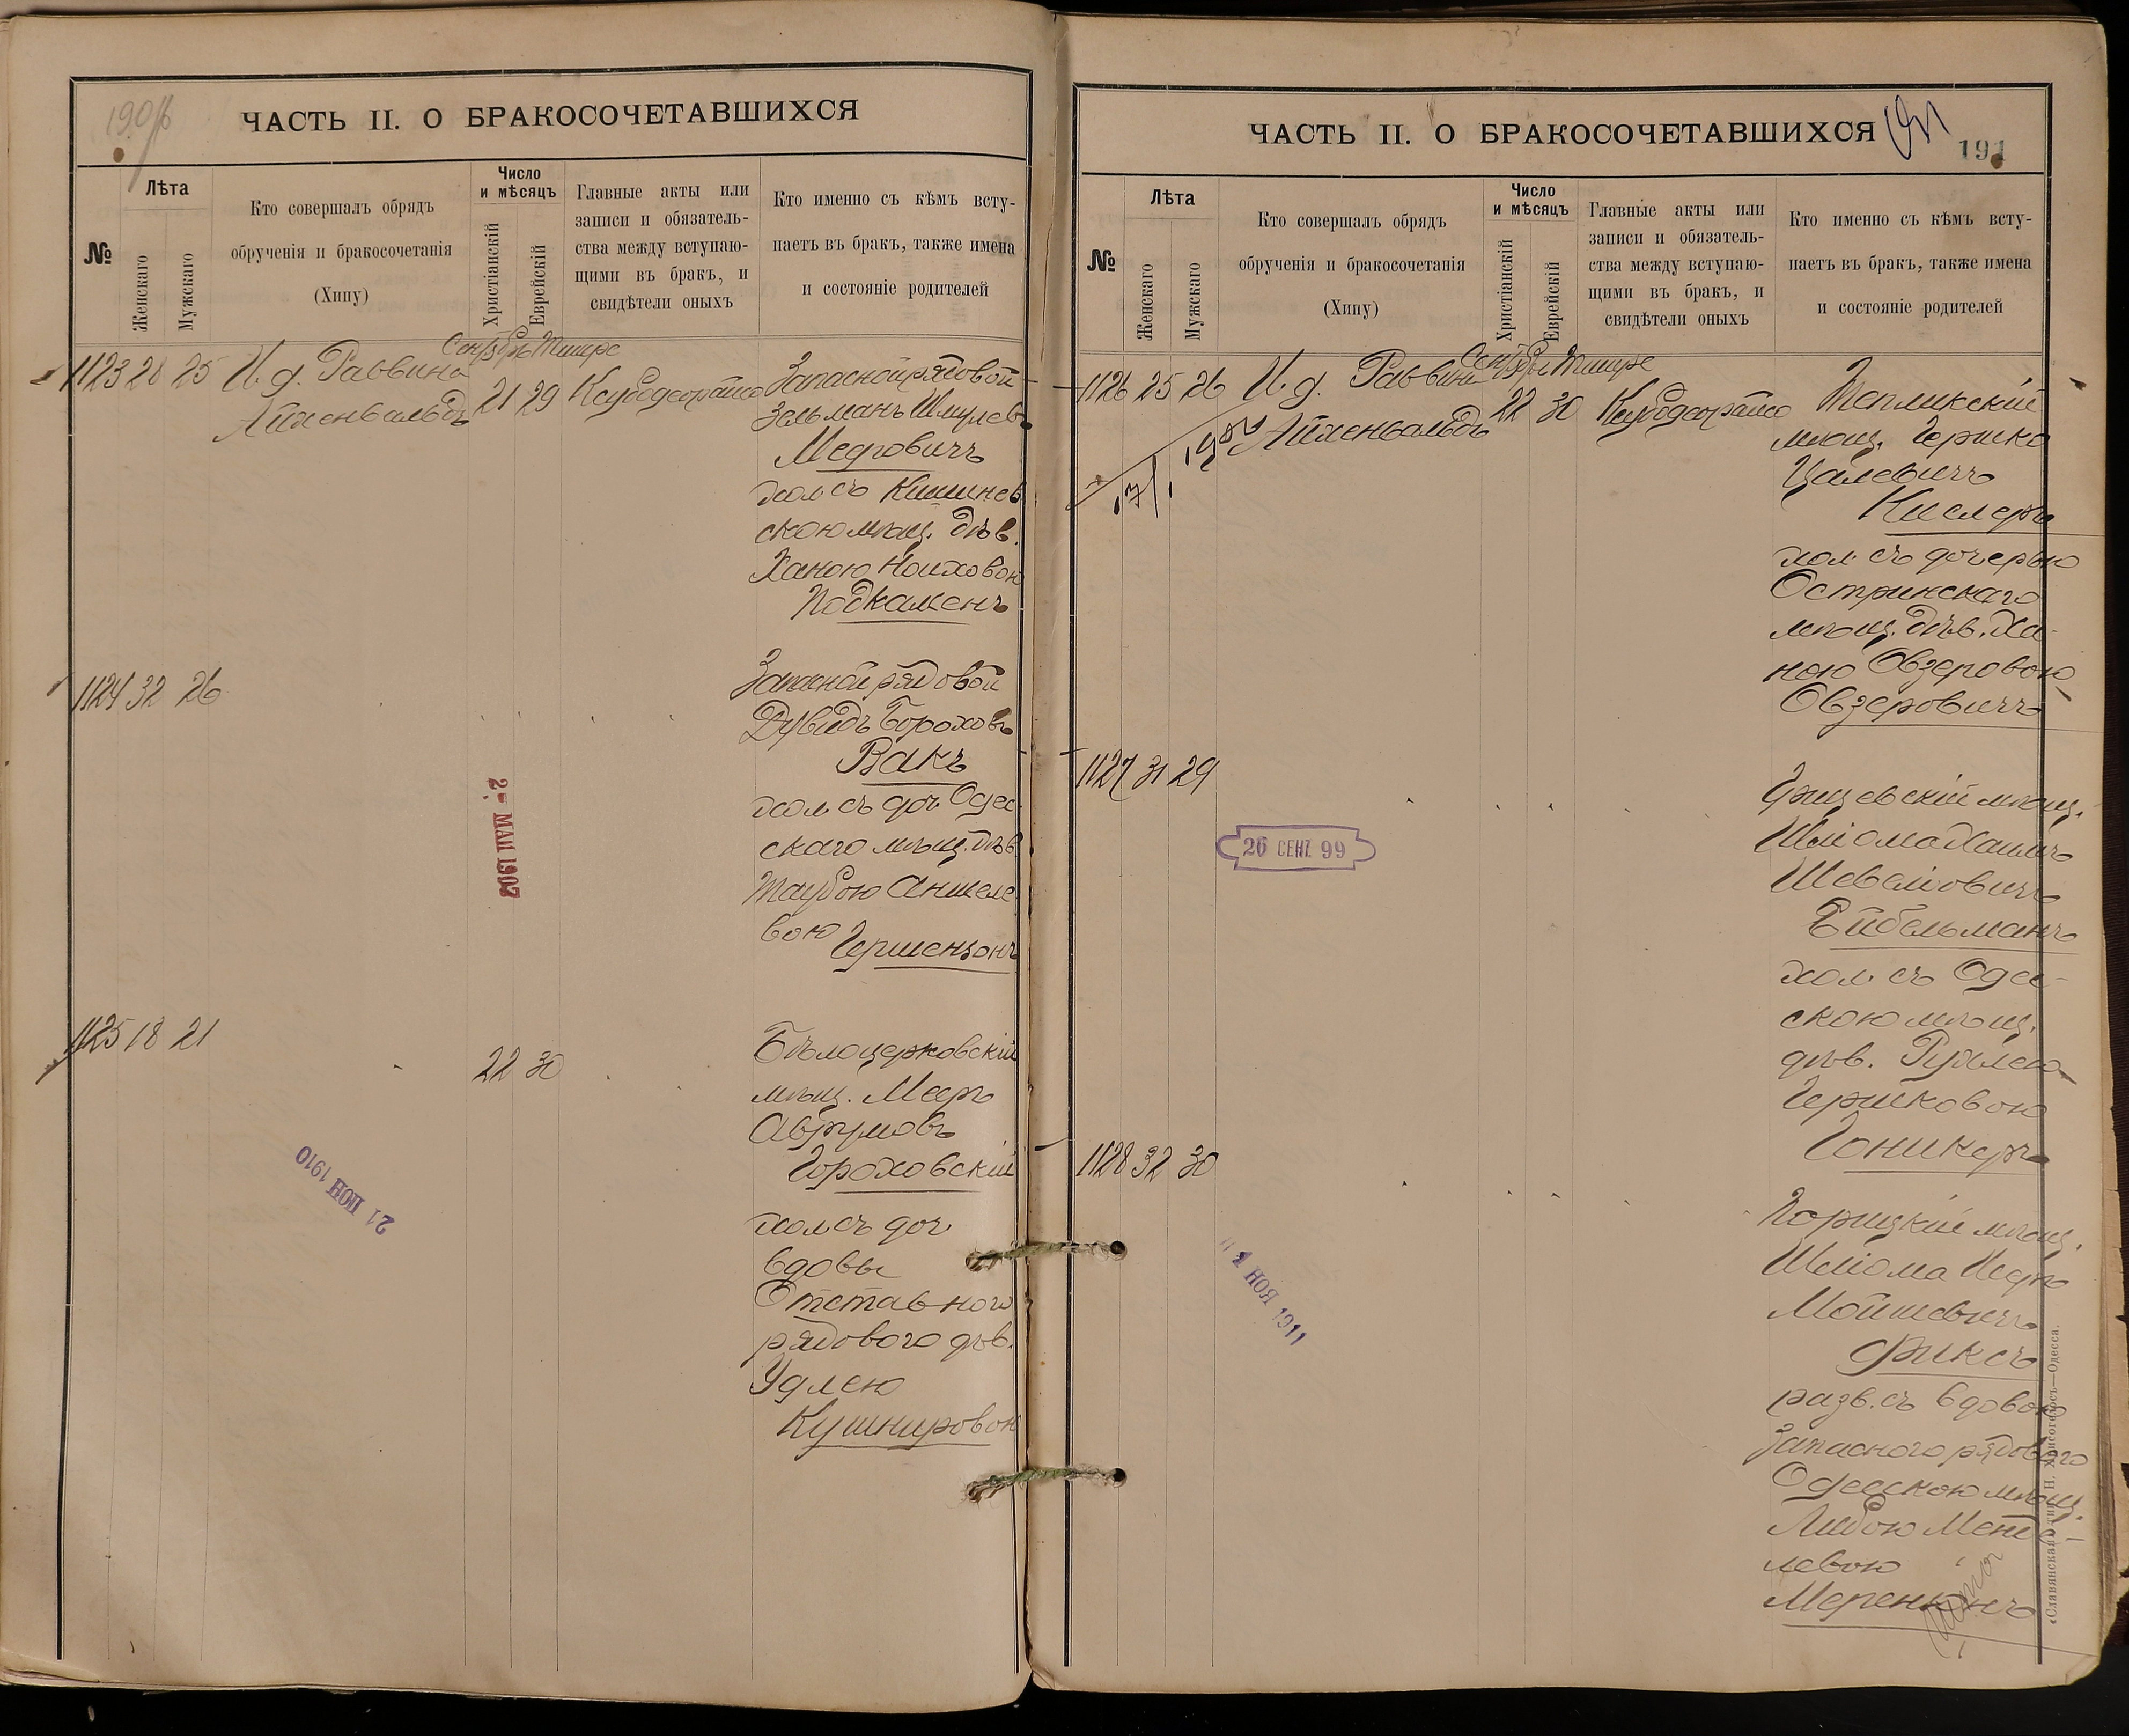 190
ЧАСТЬ II. О БРАКОСОЧЕТАВШИХСЯ
№
Лѣта
Женскаго
Мужскаго
Кто совершалъ обрядъ
обрученія и бракосочетанія
(Хипу)
Число
и мѣсяцъ
Христіанскій
Еврейскій
Главные акты или
записи и обязатель-
ства между вступаю-
щими въ бракъ, и
свидѣтели оныхъ
Кто именно съ кѣмъ всту-
паетъ въ бракъ, также имена
и состояніе родителей
Сентябрь Тишре
1123 25 И. д. Раввина
Айхенвальдъ
21 29
Запасной рядовой
Зельманъ Шмулевъ
Мееровичъ
хол съ Кишинев
скою мѣщ. дѣв.
Ханою Ноиховою
Подкаменъ
1124 32 26
Запасной рядовой
Дувидъ Бороховъ
Вакъ
хол съ доч Одес
скаго мѣщ. дѣв
Таубою Аншеле
вою Гершензонъ
2- МАЙ 1902
1125 18 21
22 30
Бѣлоцерковскій
мѣщ. Мееръ
Аврумовъ
Гороховскій
хол съ доч
вдовы
Отставного
рядового дѣв.
Удлею
Кушнировою
21 ИОН 1910
ЧАСТЬ II. О БРАКОСОЧЕТАВШИХСЯ
191
№
Лѣта
Женскаго
Мужскаго
Кто совершалъ обрядъ
обрученія и бракосочетанія
(Хипу)
Число
и мѣсяцъ
Христіанскій
Еврейскій
Главные акты или
записи и обязатель-
ства между вступаю-
щими въ бракъ, и
свидѣтели оныхъ
Кто именно съ кѣмъ всту-
паетъ въ бракъ, также имена
и состояніе родителей
Сентябрь Тишре
1126 25 26 И. д. Раввина
Айхенвальдъ
22 30
Тепликскій
мѣщ. Гершко
Цалевичъ
Кислеръ
хол. съ дочерью
Остринскаго
мѣщ. дѣв. Ха-
ною Овзеровою
Овзеровичъ
1127 31 29
26 СЕНТ. 99
мѣщ.
Шліома Хаимъ
Шевеліовичъ
Ейбельманъ
хол. съ Одес-
скою мѣщ.
дѣв. Рухлею
Гершковою
Гоникеръ
1128 32 30
НОЯ 1911
Горицкій мѣщ.
Шліома Исеръ
Мойшевичъ
Фиксъ
разв. съ вдовою
Запасного рядового
Одесскою мѣщ.
Либою Менде-
левою
«Славянская» тип. Н. Хрисогелосъ—Одесса.